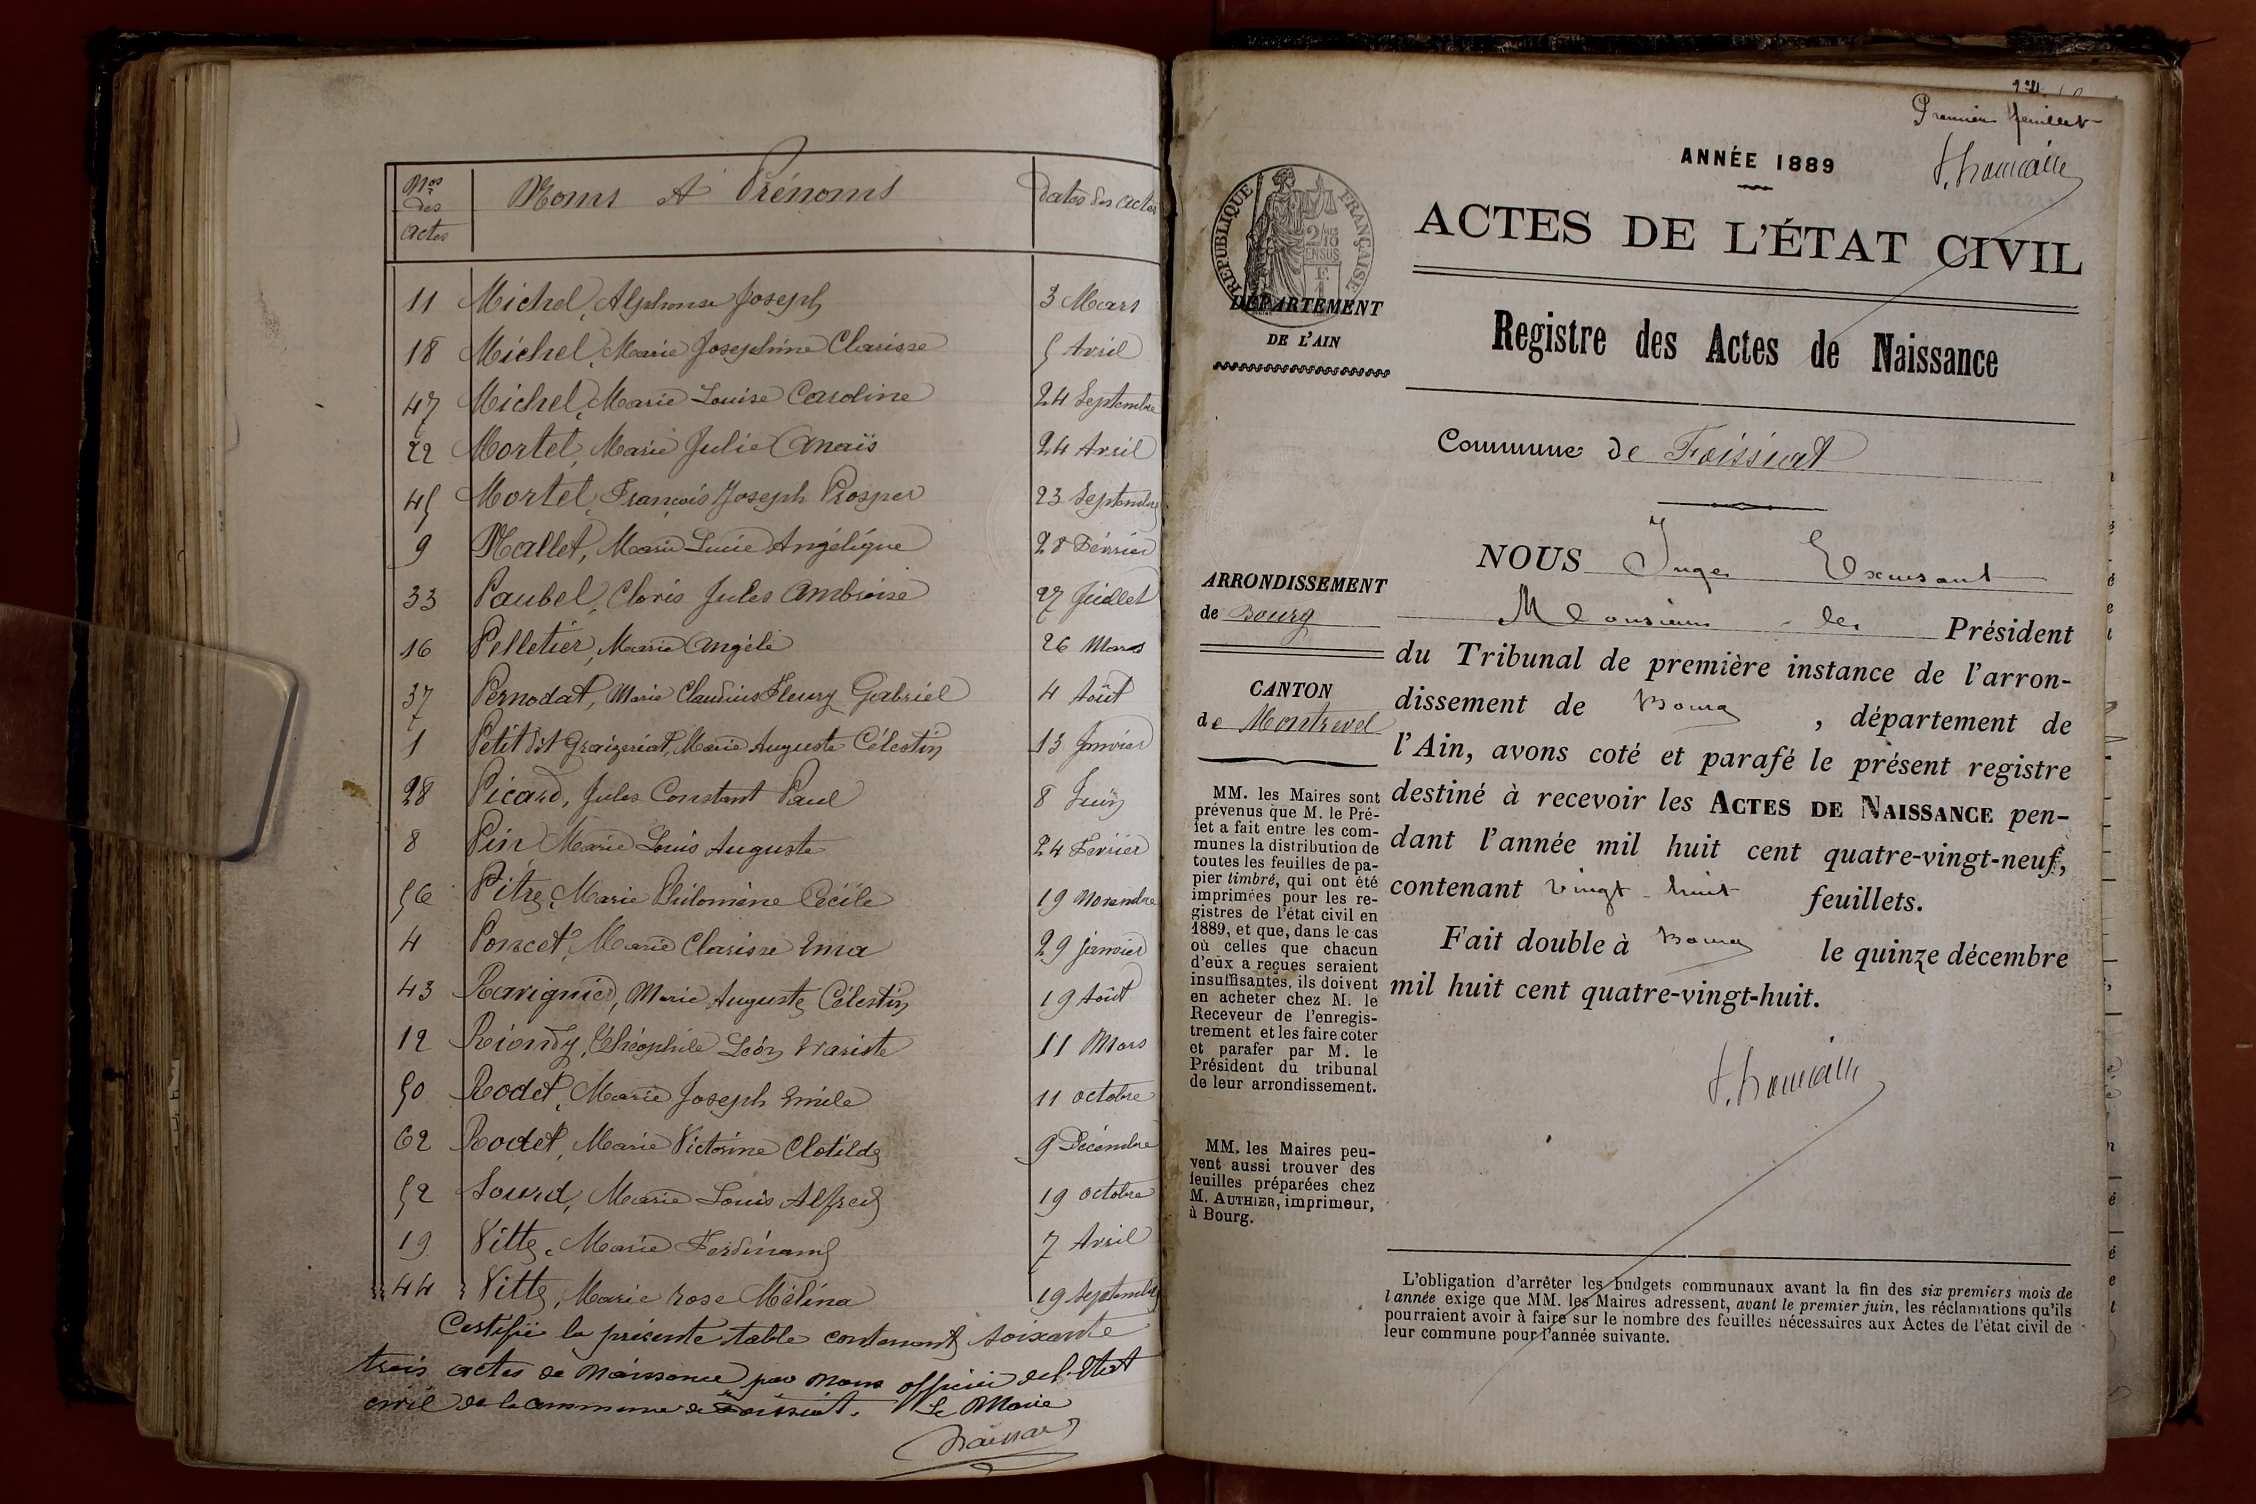 Nos des Actes
Noms et Prénoms
Dates des actes
11 Michel, Alphonse Joseph 3 Mars
18 Michel, Marie Joséphine Clarisse 5 Avril
47 Michel, Marie Louise Caroline 24 Septembre
22 Mortel, Marie Julie Anaïs 24 Avril
45 Mortel, François Joseph Prosper 23 Septembre
9 Nallet, Marie Lucie Angélique 28 Février
33 Paubel, Clovis Jules Ambroise 27 Juillet
16 Pelletier, Marie Angéle 26 Mars
37 Pernodat, Marie Claudius Fleury Gabriel 4 Août
1 Petit dit Marie Auguste Célestin 13 Janvier
28 Picard, Jules Constant Paul 8 Juin
8 Pin Marie Louis Auguste 24 Février
56 Pitre, Marie Philomène Cécile 19 Novembre
4 Poncet, Marie Clarisse Ema 29 janvier
43 Ravignier, Marie Auguste Célestin 19 Août
12 Riondy, Théophile Léon Evariste 11 Mars
50 Rodet, Marie Joseph Emile 11 octobre
62 Rodet, Marie Victorine Clotilde 9 Décembre
52 Sourd, Marie Louis Alfred 19 octobre
19 Vitte, Marie Ferdinand 7 Avril
44 Vitte, Marie Rose Mélina 19 Septembre
Certifié la présente table contenant soixante
trois actes de Naissance par Nous officier de l'Etat
civil de la commune de Foissiat. Le Maire
Premier feuillet
ANNÉE 1889
ACTES DE L'ÉTAT CIVIL
RÉPUBLIQUE FRANÇAISE
DÉPARTEMENT
DE L'AIN
Registre des Actes de Naissance
Commune de Foissiat
ARRONDISSEMENT
de Bourg
CANTON
de Montrevel
MM. les Maires sont
prévenus que M. le Pré-
fet a fait entre les com-
munes la distribution de
toutes les feuilles de pa-
pier timbré, qui ont été
imprimées pour les re-
gistres de l'état civil en
1889, et que, dans le cas
où celles que chacun
d'eux a reçues seraient
insuffisantes, ils doivent
en acheter chez M. le
Receveur de l'enregis-
trement et les faire coter
et parafer par M. le
Président du tribunal
de leur arrondissement.
MM. les Maires peu-
vent aussi trouver des
feuilles préparées chez
M. AUTHIER, imprimeur,
à Bourg.
NOUS Juge Excusant
Monsieur le Président
du Tribunal de première instance de l'arron-
dissement de Bourg, département de
l'Ain, avons coté et parafé le présent registre
destiné à recevoir les ACTES DE NAISSANCE pen-
dant l'année mil huit cent quatre-vingt-neuf,
contenant vingt-huit feuillets.
Fait double à Bourg le quinze décembre
mil huit cent quatre-vingt-huit.
L'obligation d'arrêter les budgets communaux avant la fin des six premiers mois de
l'année exige que MM. les Maires adressent, avant le premier juin, les réclamations qu'ils
pourraient avoir à faire sur le nombre des feuilles nécessaires aux Actes de l'état civil de
leur commune pour l'année suivante.